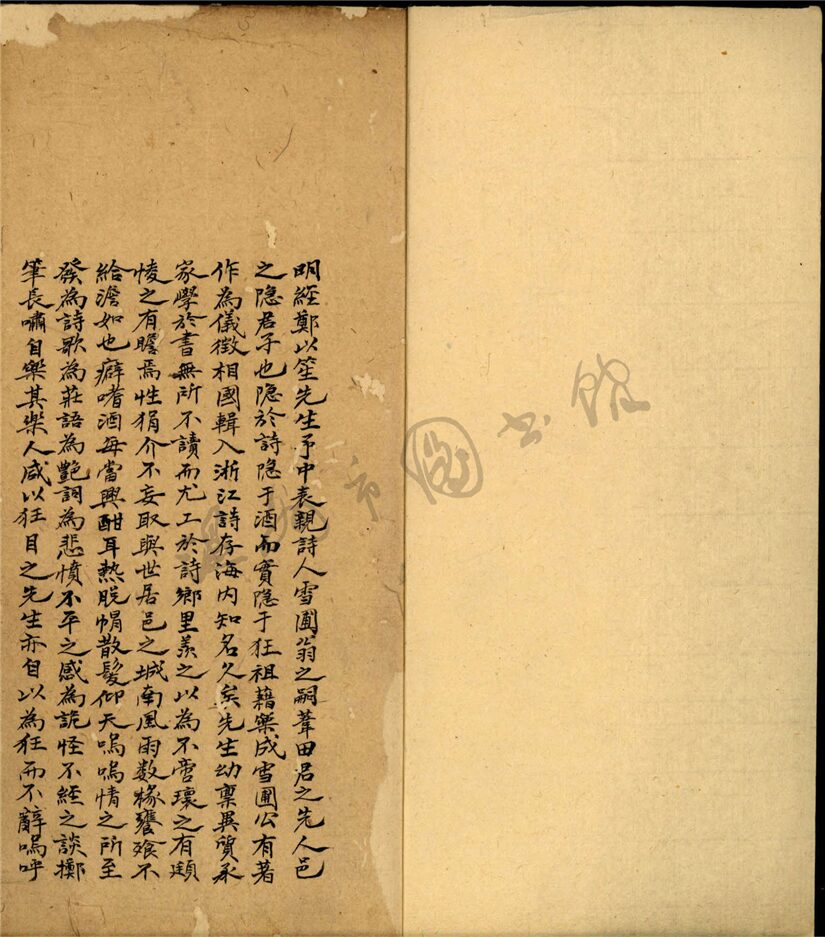 明經鄭以笙先生予中表親詩人雪圃翁之嗣葦田君之先人邑
之隐君子也隐於詩隐于酒而實隐于狂祖藉樂成雪圃公有著
作為儀徵相國輯入浙江詩存海内知名久矣先生幼禀異質承
家學於書無所不讀而尤工於詩鄉里羡之以為不啻瓌之有頲
悛之有瞻焉性狷介不妄取與世居邑之城南風雨数椽饔飧不
給澹如也癖嗜酒每當興酣耳熱脱帽散髮仰天嗚嗚情之所至
發為詩歌為莊語為艷詞為悲憤不平之感為詭怪不經之談擲
筆長嘯自樂其樂人咸以狂目之先生亦自以為狂而不辭嗚呼
市圖书馆